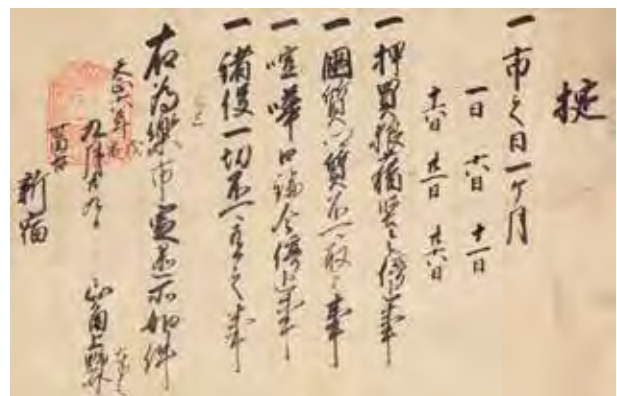 掟
一 市之日一ケ月
一日 六日 十一日
十六日 廿一日 廿六日
一 押買狼藉堅令停止事
一 國質郷質不可取之事
一 喧嘩口論令停止事
一 諸役一切不可有之事
已上
右為樂市定置所如件
天正六年戊寅
九月廿九日 山角上野介奉之
新宿